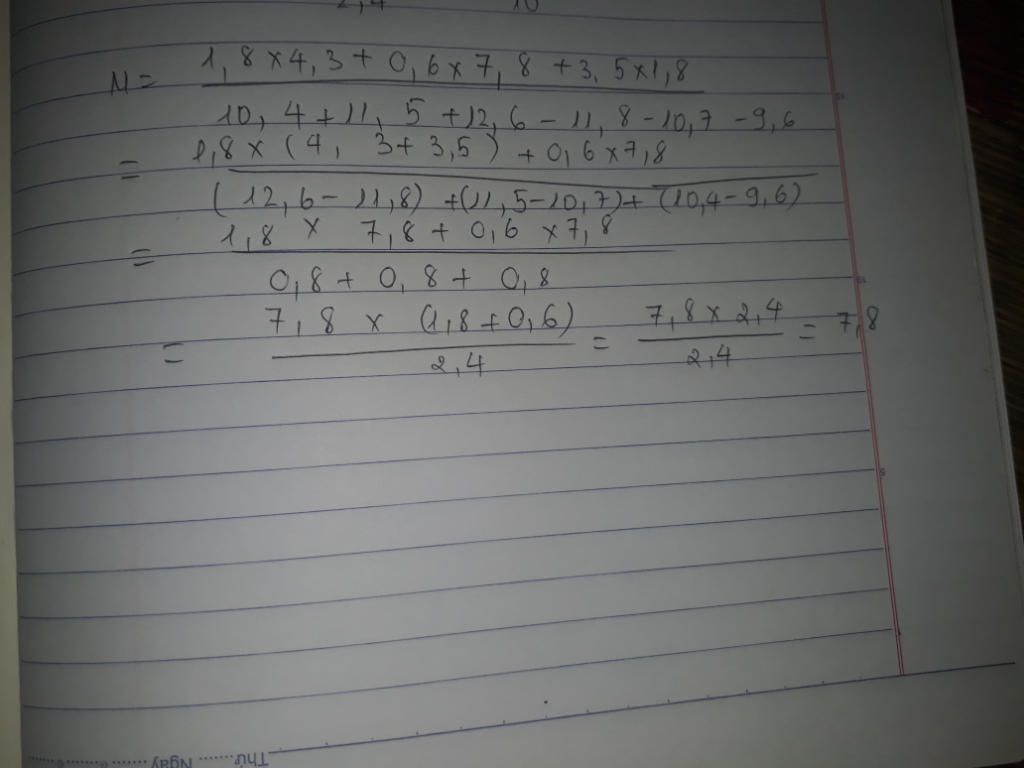 2,4 10
N = 1,8 × 4,3 + 0,6 × 7,8 + 3,5 × 1,8
10,4 + 11,5 + 12,6 - 11,8 - 10,7 - 9,6
= 1,8 × (4,3 + 3,5) + 0,6 × 7,8
(12,6 - 11,8) + (11,5 - 10,7) + (10,4 - 9,6)
= 1,8 × 7,8 + 0,6 × 7,8
0,8 + 0,8 + 0,8
= 7,8 × (1,8 + 0,6) = 7,8 × 2,4 = 7,8
2,4 2,4
Thứ....... Ngày